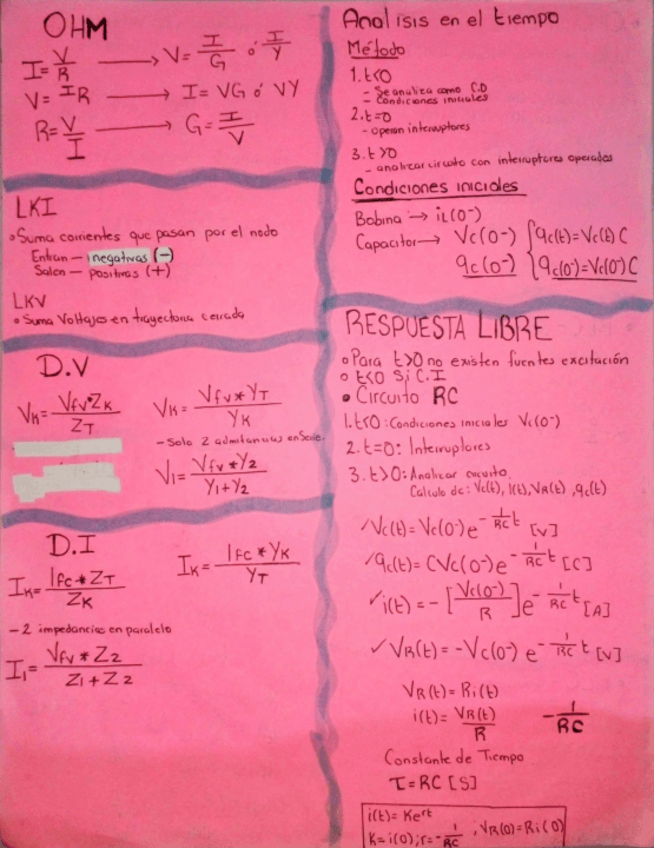 OHM
I = V/R → V = I/G ó I/Y
V = IR → I = VG ó VY
R = V/I → G = I/V
LKI
• Suma corrientes que pasan por el nodo
Entran — negativas (−)
Salen — positivas (+)
LKV
• Suma Voltajes en trayectoria cerrada
D.V
Vk = Vfv*Zk / ZT
Vk = Vfv*YT / Yk
— Solo 2 admitancias en Serie.
V1 = Vfv*Y2 / Y1+Y2
D.I
Ik = Ifc*ZT / Zk
Ik = Ifc*Yk / YT
— 2 impedancias en paralelo
I1 = Vfv*Z2 / Z1+Z2
Analisis en el tiempo
Método
1. t<0
- Se analiza como C.D
- Condiciones iniciales
2. t=0
- operan interruptores
3. t>0
- analizar circuito con interruptores operados
Condiciones iniciales
Bobina → iL(0-)
Capacitor → Vc(0-) { qc(t)=Vc(t)C
qc(0-) { qc(0-)=Vc(0-)C
RESPUESTA LIBRE
• Para t>0 no existen fuentes excitación
• t<0 Si C.I
• Circuito RC
1. t<0: Condiciones iniciales Vc(0-)
2. t=0: Interruptores
3. t>0: Analizar circuito.
Calculo de: Vc(t), i(t), VR(t), qc(t)
✓Vc(t)=Vc(0-) e^-1/RC t [V]
✓qc(t)=CVc(0-) e^-1/RC t [C]
✓i(t)= -[Vc(0-)/R] e^-1/RC t [A]
✓VR(t)=-Vc(0-) e^-1/RC t [V]
VR(t)=Ri(t)
i(t)=VR(t)/R -1/RC
Constante de Tiempo
τ=RC [S]
i(t)=Ke^rt
K=i(0); r=-1/RC, VR(0)=Ri(0)